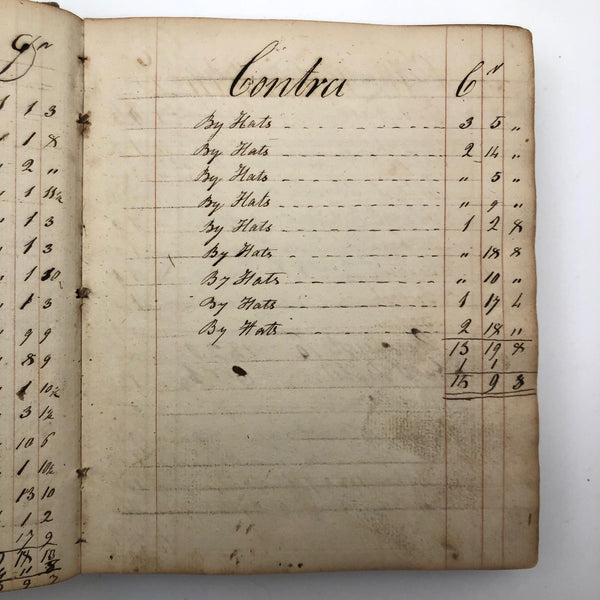 Dr
1 3
1 8
2 "
1
1 3
1 3
1
1 3
9 9
8 9
1 10½
3 1½
10 6
1 10½
13 10
1 2
17 9
18
9
Contra Cr
By Hats 3 5 "
By Hats 2 14 "
By Hats " 5 "
By Hats " 9 "
By Hats 1 2 8
By Hats " 18 8
By Hats " 10 "
By Hats 1 17 4
By Hats 2 18 "
13 19 8
1 1
15 9 3